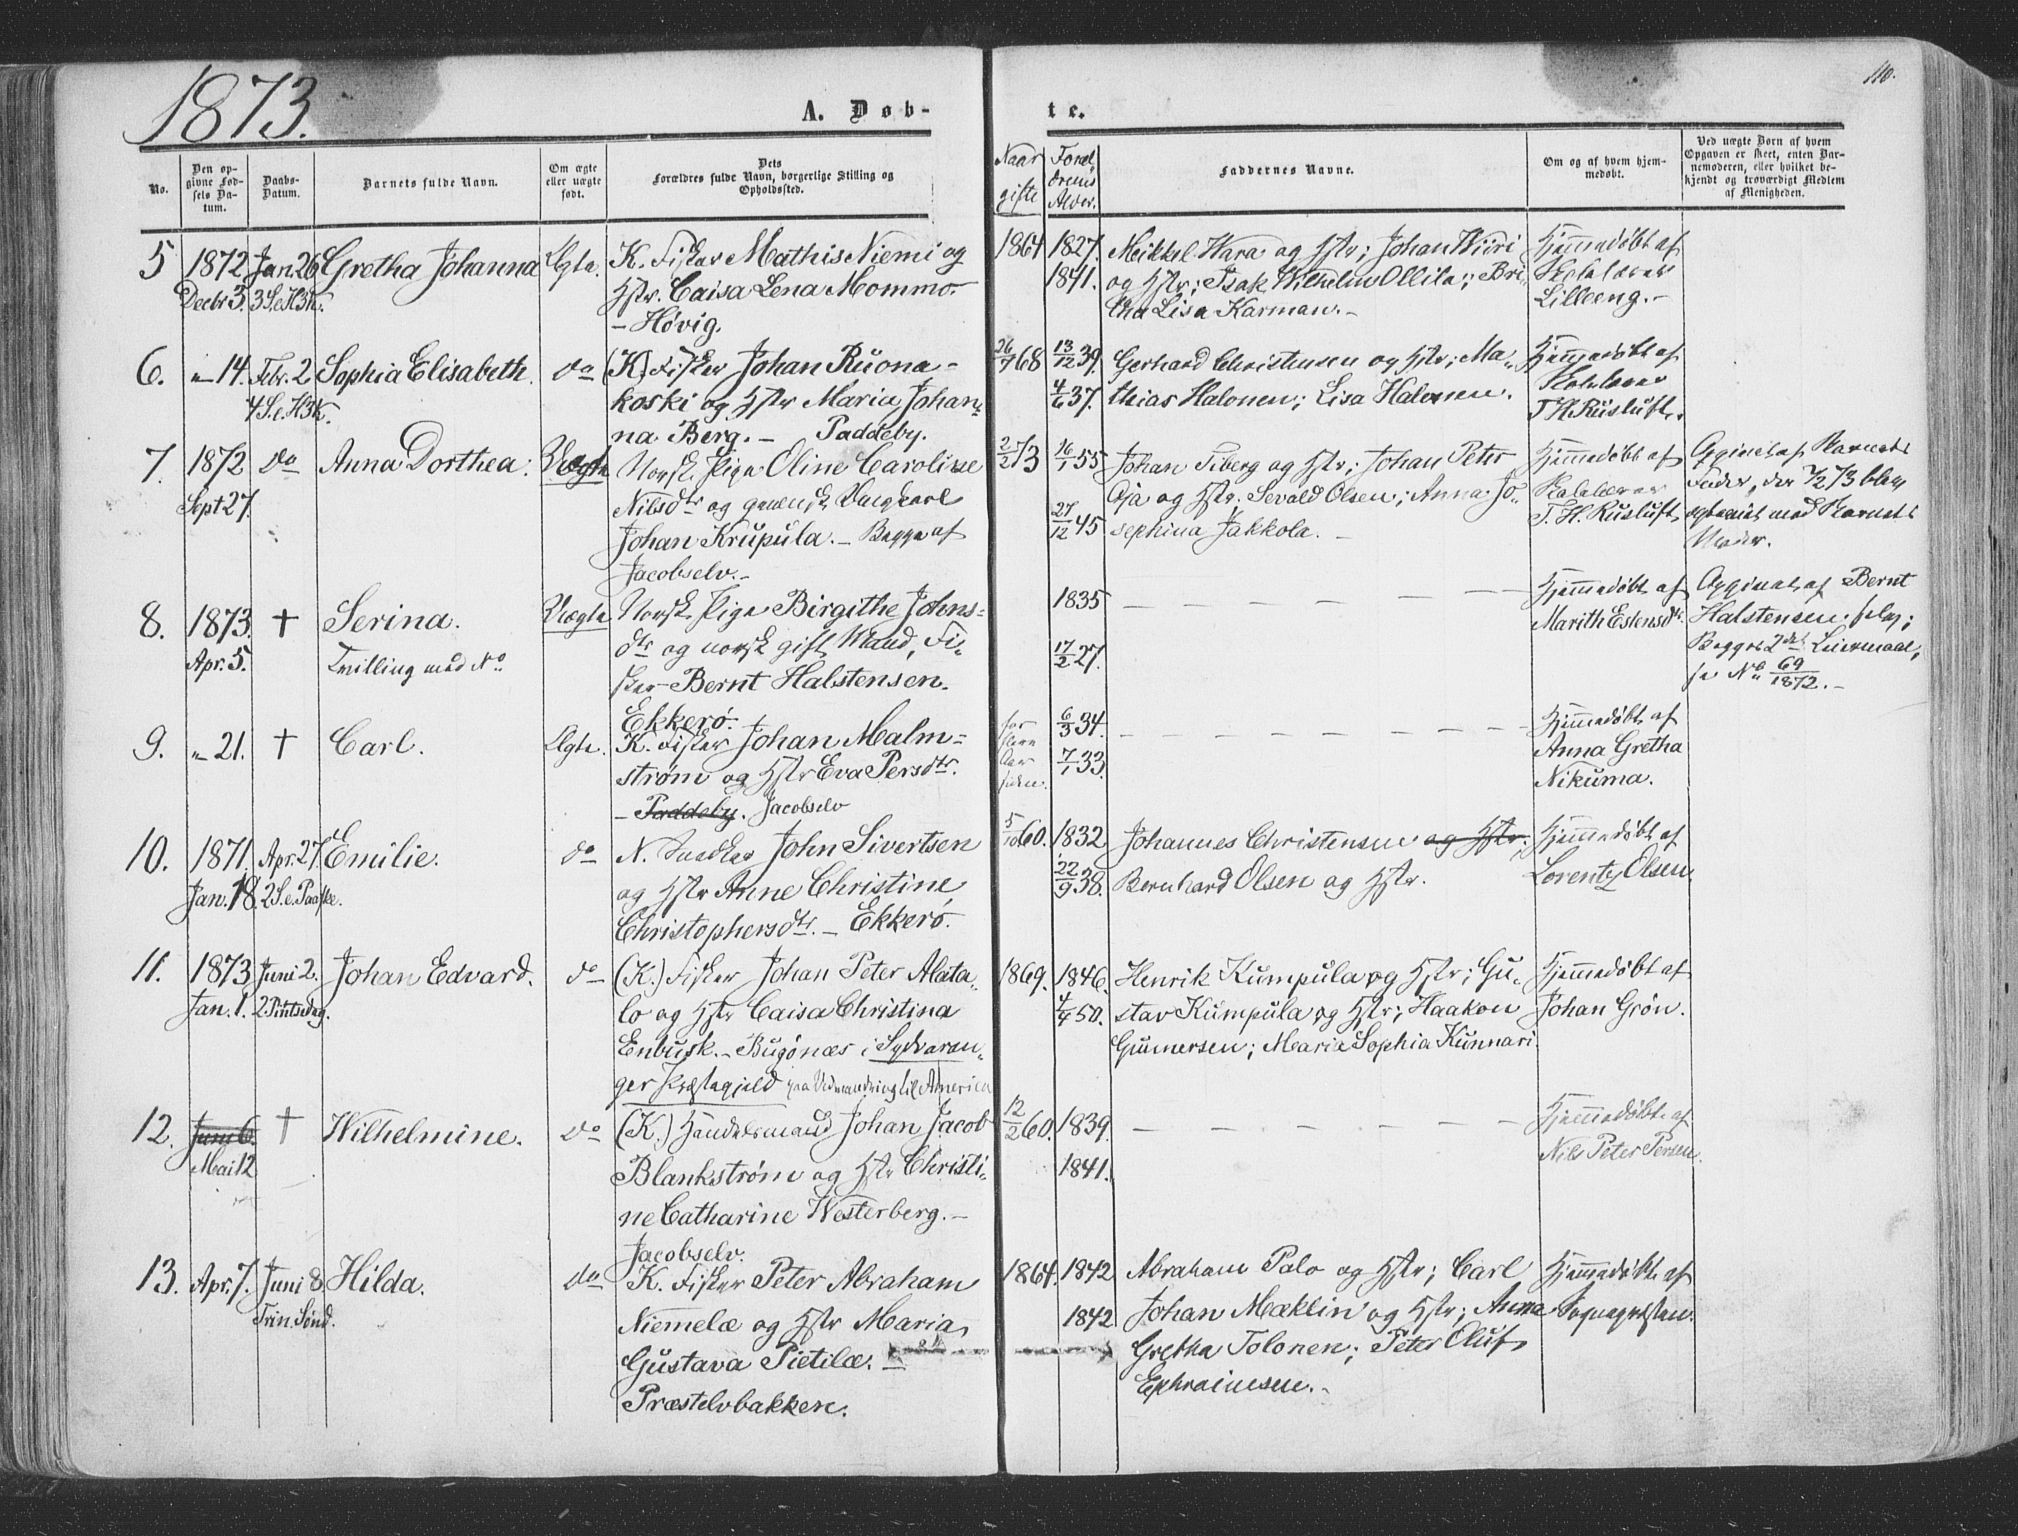 1873.
110.
A. Døb-
te.
No.
Den op-
givne Fød-
sels Da-
tum.
Daabs-
Datum.
Barnets fulde Navn.
Om ægte
eller uægte
født.
Dets
Forældres fulde Navn, borgerlige Stilling og
Opholdssted.
Naar
gifte
Foræl
drenes
Alder.
Faddernes Navne.
Om og af hvem hjem-
medøbt.
Ved uægte Børn af hvem
Opgaven er skeet, enten Bar-
nemoderen, eller hvilket be-
kjendt og troværdigt Medlem
af Menigheden.
5
1872
Decbr 3.
Jan. 26
3 S. e. H3K.
Gretha Johanna
Ægte.
K. Fisker Mathis Niemi og
Hstr. Caisa Lena Mommo.
– Høvig.
1864
1827.
1841.
Meikkel Hara og Hstr; Johan Wiiri
og Hstr; Isak Wilhelm Ollila; Bri-
tha Lisa Karman. –
Hjemmedøbt af
Kirkelærer
Lilleeng. –
6.
" 14.
Febr. 2
4 S. e. H3K.
Sophia Elisabeth.
do
(K) Fisker Johan Ruona-
koski og Hstr Maria Johan-
na Berg. – Paddeby.
26/7 68
13/12 39.
4/6 37.
Gerhard Christensen og Hstr; Ma-
thias Halonen; Lisa Halonen.
Hjemmedøbt af
T. H. Rusluft.
7.
1872
Sept 27.
do
Anna Dorthea.
Uægte
Norsk Pige Oline Caroline
Nilsdtr og qvænsk Ungkarl
Johan Krupula. – Begge af
Jacobselv. –
2/2 73
16/1 55
27/12 45
Johan Fiberg og Hstr; Johan Peter
Oja og Hstr. Sevald Olsen; Anna Jo-
sephina Jakkola. –
Hjemmedøbt af
T. H. Rusluft.
Opgivet af Barnets
Fader, der 2/2 73 blev
egteviet med Barnets
Moder.
8.
1873.
Apr. 5.
†
Serina.
Tvilling med No
Uægte
Norsk Pige Birgithe Johns-
dtr og norsk gift Mand, Fi-
sker Bernt Halstensen.
Ekkerø.
1835
17/2 27.
Hjemmedøbt af
Marith Estensdtr.
Opgivet af Bernt
Halstensen selv;
Begges 2det Leiermaal,
se No 69/1872. –
9.
" 21.
†
Carl.
Ægte.
K. Fisker Johan Malm-
strøm og Hstr Eva Persdtr.
– Paddeby. Jacobselv
for
flere
Aar
siden.
6/3 34.
7/1 33.
Hjemmedøbt af
Anna Gretha
Nikuma.
10.
1871.
Jan. 18.
Apr. 27.
2 S. e. Paaske.
Emilie.
do
N. Snedker John Sivertsen
og Hstr Anne Christine
Christophersdtr. – Ekkerø.
5/10 60.
1832
22/9 38.
Johannes Christensen og Hstr;
Bernhard Olsen og Hstr.
Hjemmedøbt af
Lorentz Olsen.
11.
1873
Jan. 1.
Juni 2.
2. Pintsedag.
Johan Edvard.
do
(K.) Fisker Johan Peter Alata-
lo og Hstr Caisa Christina
Enbusk. – Bugønæs i Sydvaran-
ger Præstegjeld paa Udvandring til America
1869.
1846.
4/4 50.
Henrik Kumpula og Hstr; Gu-
stav Kumpula og Hstr; Haakon
Gunnersen; Maria Sophia Kunnari.
Hjemmedøbt af
Johan Grön.
12.
Juni 6.
Mai 12
†
Wilhelmine.
do
(K.) Handelsmand Johan Jacob
Blankstrøm og Hstr Christi-
ne Catharine Westerberg. –
Jacobselv.
12/2 60.
1839.
1841.
Hjemmedøbt af
Nils Peter Persen.
13.
Apr. 7.
Juni 8.
Trin. Sønd.
Hilda.
do
K. Fisker Peter Abraham
Niemelæ og Hstr Maria
Gustava Pietilæ. –
Præstelvbakken.
1864.
1842
1842
Abraham Palo og Hstr; Carl
Johan Mæklin og Hstr; Anna
Gretha Tolonen; Peter Oluf
Ephraimsen. –
Hjemmedøbt af
Sognepræsten.